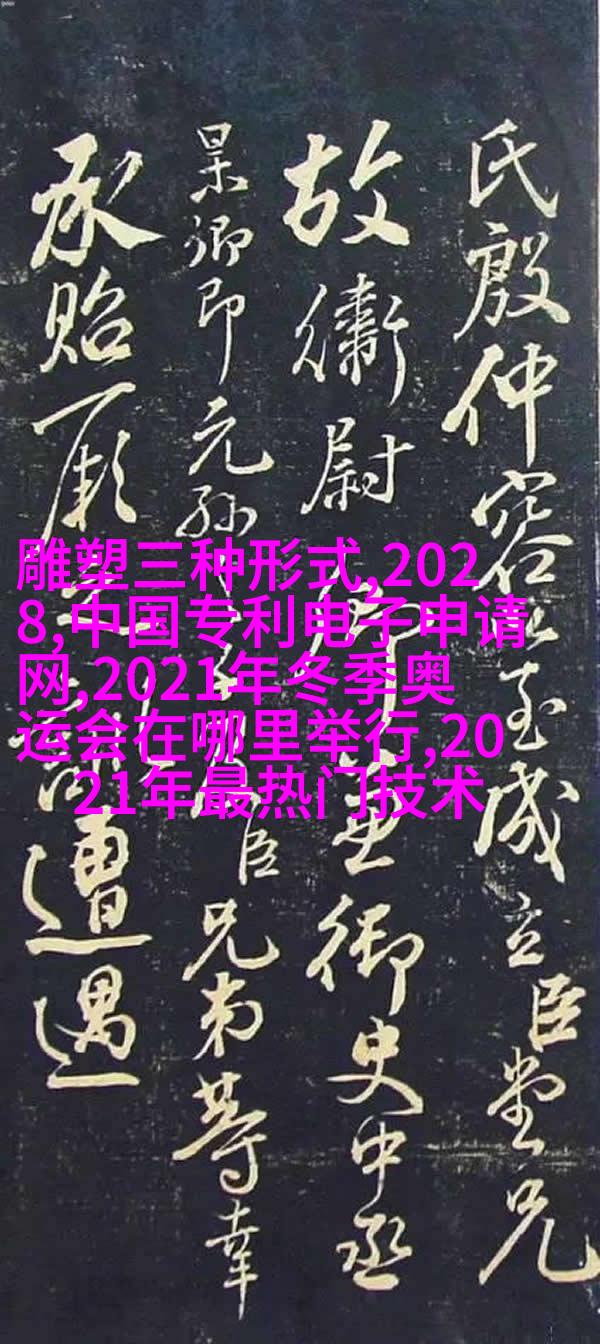 氏殷仲容以至成立臣堂兄
故衛尉卿兼御史中丞
杲卿即元孫臣兄弟等幸
承貽厥遭遇
雕塑三种形式,202
8,中国专利电子申请
网,2021年冬季奥
运会在哪里举行,20
21年最热门技术